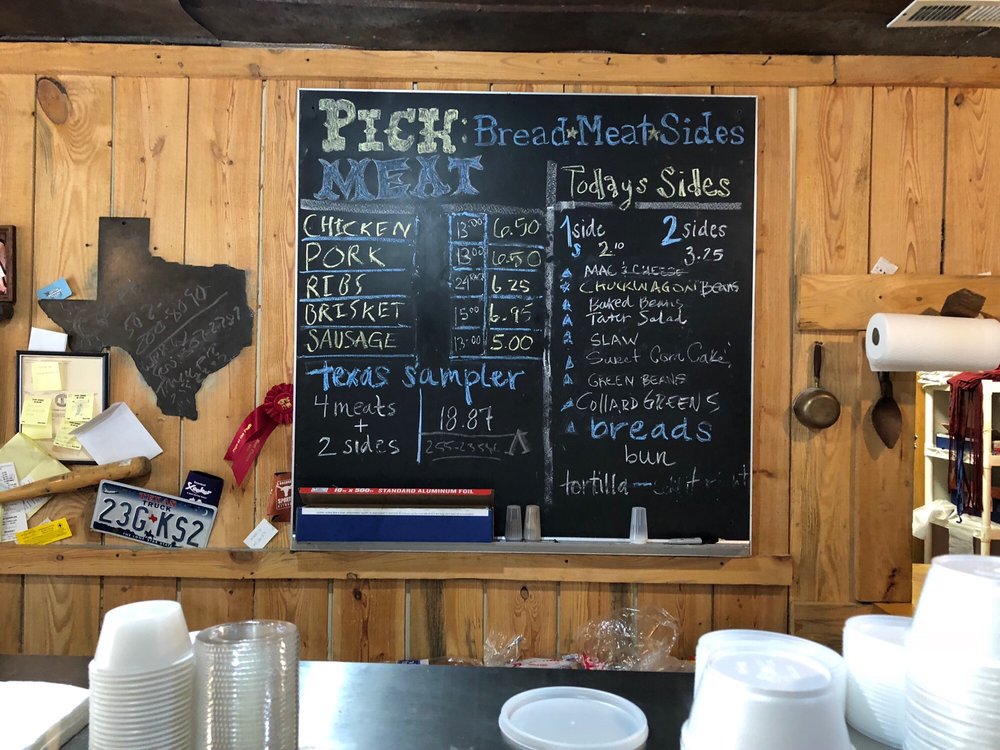 PICK: Bread Meat Sides
MEAT
CHICKEN 13.00 6.50
PORK 13.00 6.50
RIBS 24 RACK 6.25
BRISKET 15.00 6.95
SAUSAGE 13.00 5.00
Texas Sampler
4 meats
+
2 sides
18.87
Todays Sides
1 side 2 sides
2.10 3.25
MAC & CHEESE
CHUCKWAGON Beans
Baked Beans
Tater Salad
SLAW
Sweet Corn Cake
GREEN BEANS
COLLARD GREENS
breads
bun
tortilla
10" x 500' STANDARD ALUMINUM FOIL
TEXAS
TRUCK
23G KS2